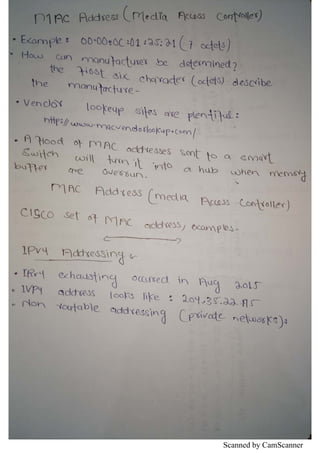 MAC Address (Media Access Controller)
• Example : 00:00:0C:01:25:21 (7 octets)
• How can manufacturer be determined?
the First six character (octets) describe
the manufacture-
• Vendor lookup sites are plentiful :
http://www.macvendorlookup.com/
• A flood of MAC addresses sent to a smart
Switch will turn it into a hub when memory
buffer are overrun.
MAC Address (media Access Controller)
CISCO set of MAC address, examples-
IPv4 Addressing
• IPv4 exhausting occured in Aug 2015
• IVP4 address looks like : 204.35.22.A5
• Non routable addressing (private networks):
Scanned by CamScanner